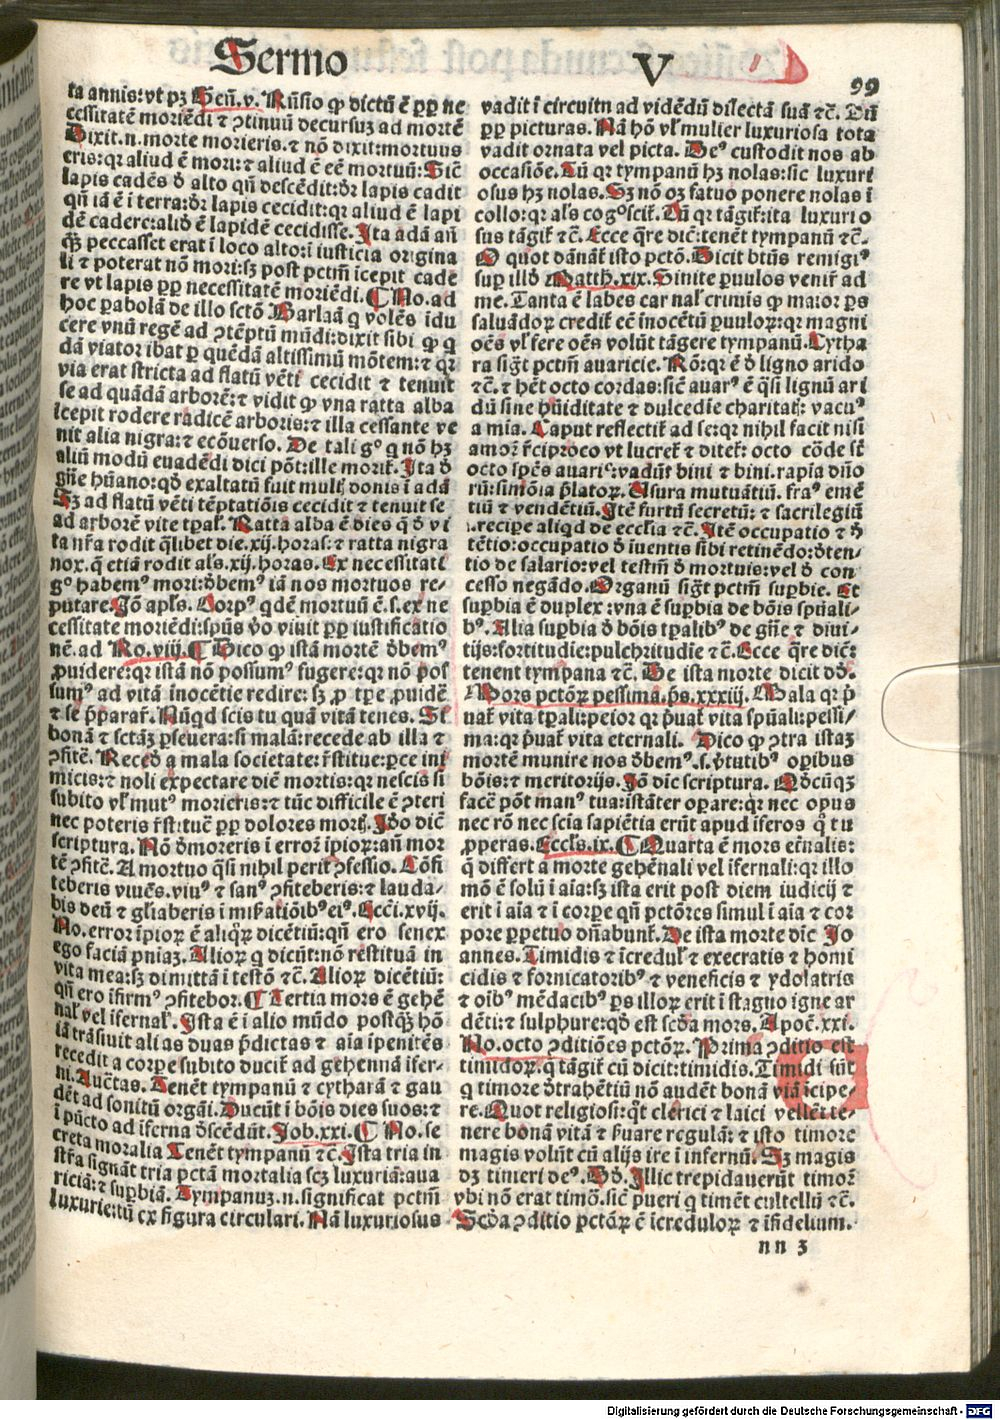 Sermo V
99
ta annis: vt pȝ Geñ. v. Rñsio ꝙ dictũ ē ꝓp̱ ne
cessitatē moriēdi ⁊ ꝯtinuũ decursuȝ ad mortē
Dixit. n. morte morieris. ⁊ nō dixit: mortuus
eris: qr aliud ē mori: ⁊ aliud ē eē mortuũ: Sic̄
lapis cadēs ð alto qñ descēdit: ðr lapis cadit
qñ iā ē i terra: ðr lapis cecidit: qr aliud ē lapi
dē cadere: alið ē lapidē cecidisse. Ita adā añ
qȝ peccasset erat ĩ loco alto: ĩ iusticia origina
li ⁊ poterat nō mori: sȝ post pctm̄ icepit cade
re vt lapis ꝓp̱ necessitatē moriēdi. ¶ No. ad
hoc ꝑabolā de illo sctō Barlaā q volēs idu
cere vnũ regē ad ꝯtēptũ mũdi: dixit sibi ꝙ q
dā viator ibat ꝑ quēdā altissimũ mōtem: ⁊ qr
via erat stricta ad flatũ vēti cecidit ⁊ tenuit
se ad quādā arborē: ⁊ vidit ꝙ vna ratta alba
icepit rodere radicē arboris: ⁊ illa cessante ve
nit alia nigra: ⁊ ecōuerso. De tali gº q nō hȝ
aliũ modũ euadēdi dici pōt: ille morit̃. Ita ð
gñe hũano: qð exaltatũ fuit multꝭ donis ĩ adā
Sȝ ad flatũ vēti tēptatiōis cecidit ⁊ tenuit se
ad arborē vite tp̱al̃. Ratta alba ē dies q ð vi
ta nr̄a rodit qlibet die. xij. horas: ⁊ ratta nigra
nox. q etiā rodit als. xij. horas. Ex necessitati
gº habem⁹ mori: ðbem⁹ iā nos mortuos re-
putare. Jō apl̃s. Corp⁹ qdē mortuũ ē. s. ex ne
cessitate moriēdi: spũs ṽo viuit ꝓp̱ iustificatio
nē. ad Ro. viij. ¶ Dico ꝙ istā mortē ðbem⁹
ꝓuidere: qr istā nō possum⁹ fugere: qr nō pos
sum⁹ ad vitā inocētie redire: sȝ ꝓ tp̱e ꝓuidē
⁊ se p̄parar̃. Nũqd scis tu quā vitā tenes. Si
bonā ⁊ sctāȝ ꝑseuera: si malā: recede ab illa ⁊
ꝯfitē. Recedꝭ a mala societate: r̃stitue: ꝑce ini
micis: ⁊ noli expectare diē mortis: qr nescis si
subito vl̃ mut⁹ morieris: ⁊ tũc difficile ē ꝯteri
nec poteris r̃stituē ꝓp̱ dolores mortꝭ. Jðo dic̄
scriptura. Nō ðmoreris ĩ errorꝭ ĩpioꝝ: añ mor
tē ꝯfitē. A mortuo qsi nihil perit ꝯfessio. Cōfi
teberis viuēs. viu⁹ ⁊ san⁹ ꝯfiteberis: ⁊ lauda-
bis deũ ⁊ gl̃iaberis ĩ misatiōib⁹ ei⁹. Ecci. xvij.
No. error ĩpioꝝ ē aliqꝝ dicētiũ: qñ ero senex
ego faciā pniaȝ. Alioꝝ q dicũt: nō restituā in
vita mea: sȝ dimittā ĩ testō ⁊c̄. Alioꝝ dicētiũ:
qñ ero ifirm⁹ ꝯfitebor. ¶ Tertia mors ē gehē
nal̃ vel ifernal̃. Ista ē ĩ alio mũdo postqȝ hō
iā trāsiuit ali as duas p̄dictas ⁊ aīa ipenitēs
recedit a corpe subito ducit̃ ad gehennā ifer-
ni. Auctas. Tenēt tympanũ ⁊ cytharā ⁊ gau
dēt ad sonitũ orgāi. Ducũt ĩ bōis dies suos: ⁊
ĩ pũcto ad iferna ðscēdũt. Job. xxi. ¶ No. se
creta moralia Tenēt tympanũ ⁊c̄. Ista tria in
str̃a signāt tria pctā mortalia scȝ luxuriā: aua
riciā: ⁊ supbiā. Tympanuȝ. n. significat pctm̄
luxurie: tũ ex figura circulari. Nā luxuriosus
vadit ĩ circuitu ad vidēdũ dilectā suā ⁊c̄. Tũ
ꝓp̱ picturas. Nā hō vl̃ mulier luxuriosa tota
vadit ornata vel picta. De⁹ custodit nos ab
occasiōe. Tũ qr tympanũ hȝ nolas: sic luxuri
osus hȝ nolas. Sȝ nō oȝ fatuo ponere nolas ĩ
collo: qr als cogºscit̃. Tũ qr tāgit̃: ita luxurio
sus tāgit̃ ⁊c̄. Ecce qre dic̄: tenēt tympanũ ⁊c̄.
O quot dānāt̃ isto pctō. Dicit btũs remigi⁹
sup illð Matth. xix. Sinite puulos venir̃ ad
me. Tanta ē labes car nal̃ crimis ꝙ maior ps
saluādoꝝ credit̃ eē inocētũ puuloꝝ: qr magni
oēs vl̃ fere oēs volũt tāgere tympanũ. Cytha
ra sigt̃ pctm̄ auaricie. Rō: qr ē ð ligno arido
⁊c̄. ⁊ hēt octo cordas: sic̄ auar⁹ ē qsi lignũ ari
dũ sine hũiditate ⁊ dulcedīe charitatꝭ: vacu⁹
a mīa. Caput reflectit̃ ad se: qr nihil facit nisi
amor̃ r̃ciproco vt lucret̃ ⁊ ditet̃: octo cōde st̃
octo spēs auaris⁹: vadũt bini ⁊ bini. rapīa dño
rũ: simōia p̄latoꝝ. Usura mutuātiũ. fra⁹ emē
tiũ ⁊ vendētiũ. Itē furtũ secretũ: ⁊ sacrilegiũ
.i. recipe aliqd de ecclia ⁊c̄. Itē occupatio ⁊ ð
tētio: occupatio ð iuentis sibi retinēdo: ðten-
tio de salario: vel testm̄ ð mortuis: vel ð con
cesso negādo. Organũ sigt̃ pctm̄ supbie. Et
supbia ē duplex: vna ē supbia de bōis spũali-
b⁹. Alia supbia ð bōis tp̱alib⁹ de gñe ⁊ diui-
tijs: fortitudīe: pulchritudīe ⁊c̄. Ecce qre dic̄:
tenent tympana ⁊c̄. De ista morte dicit dð.
Mors pctōꝝ pessima. ps. xxxiij. Mala qr p̄
uat̃ vita tp̱ali: peior qr p̄uat̃ vita spũali: pessi-
ma: qr p̄uat̃ vita eternali. Dico ꝙ ꝯtra istaȝ
mortē munire nos ðbem⁹. s. ṽtutib⁹ opibus
bōis: ⁊ meritorijs. Jō dic̄ scriptura. Qðcũqȝ
facē pōt man⁹ tua: istāter opare: qr nec opus
nec rō nec scīa sapiētia erũt apud iferos qº tu
ꝓperas. Eccl̃s. ix. ¶ Quarta ē mors et̃nalis:
q differt a morte gehēnali vel ifernali: qr illo
mō ē solũ ĩ aīa: sȝ ista erit post diem iudicij ⁊
erit ĩ aīa ⁊ ĩ corpe qñ pctōres simul ĩ aīa ⁊ cor
pore ꝑpetuo dñabunt̃. De ista morte dic̄ Jo
annes. Timidis ⁊ icredul̃ ⁊ execratis ⁊ homi
cidis ⁊ fornicatorib⁹ ⁊ veneficis ⁊ ydolatris
⁊ oīb⁹ mēdacib⁹ ps illoꝝ erit ĩ stagno igne ar
dēti: ⁊ sulphure: qð est scða mors. Apoc̄. xxi.
No. octo ꝯditiōes pctōꝝ. Prima ꝯditio est
timidoꝝ. q tāgit̃ cũ dicit: timidis. Timidi sũt
q timore ðtrahētiũ nō audēt bonā viā icipe-
re. Quot religiosi: qt̃ clerici ⁊ laici vellēt te-
nere bonā vitā ⁊ p̄uare regulā: ⁊ isto timore
magis volũt cũ alijs ire ĩ infernũ. Sȝ magis
dȝ timeri de⁹. Dð. Illic trepidauerũt timor̃
vbi nō erat timō. sic̄ pueri q timēt cultellũ ⁊c̄.
Scða ꝯditio pctōꝝ ē icreduloꝝ ⁊ ifidelium.
nn 3
Digitalisierung gefördert durch die Deutsche Forschungsgemeinschaft - DFG